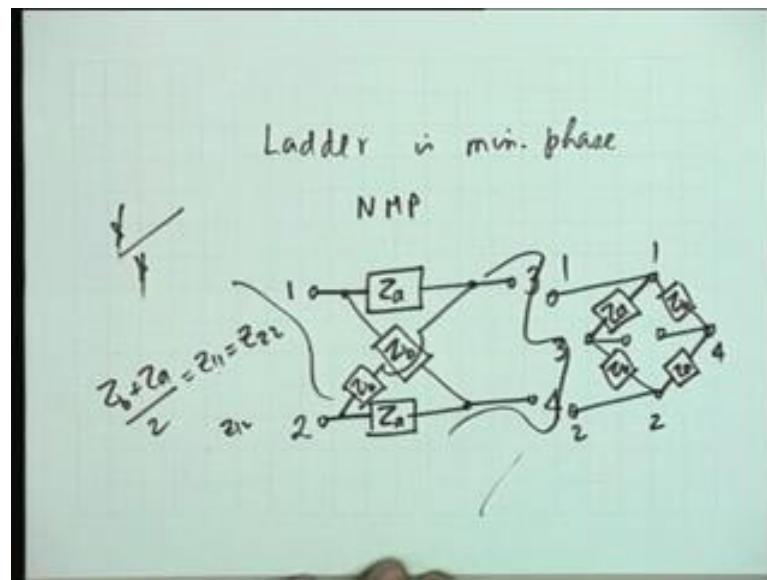 Ladder is min. phase
NMP
1 Za 3
Zb
Zb
2 Za 4
Zb + Za / 2 = Z11 = Z22
Z12
1 1
Za Zb
3 4
Zb Za
2 2